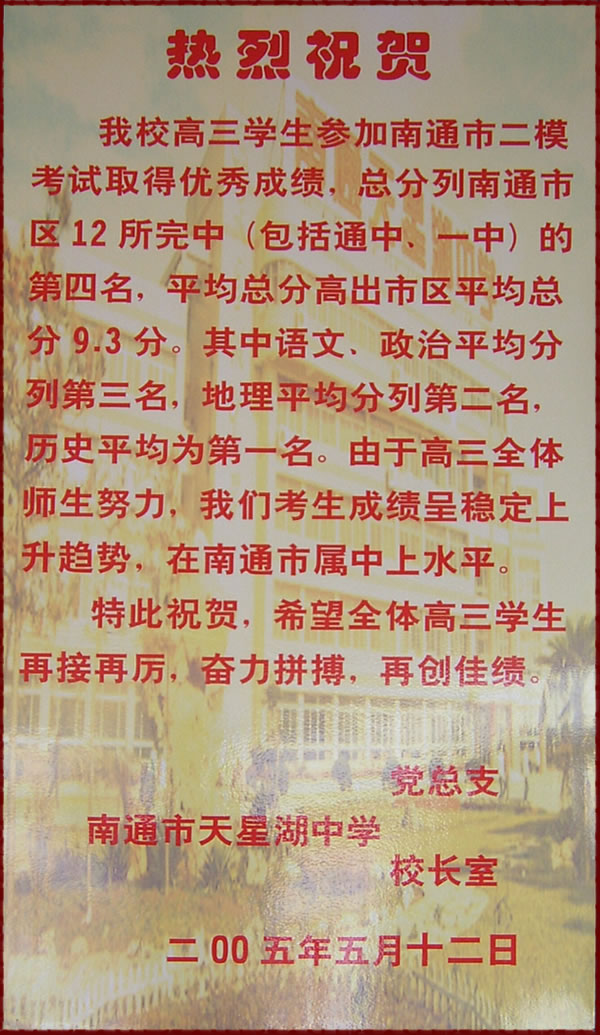 热烈祝贺
我校高三学生参加南通市二模
考试取得优秀成绩，总分列南通市
区12所完中（包括通中、一中）的
第四名，平均总分高出市区平均总
分9.3分。其中语文、政治平均分
列第三名，地理平均分列第二名，
历史平均为第一名。由于高三全体
师生努力，我们考生成绩呈稳定上
升趋势，在南通市属中上水平。
特此祝贺，希望全体高三学生
再接再厉，奋力拼搏，再创佳绩。
党总支
南通市天星湖中学
校长室
二00五年五月十二日
南通天星湖中学